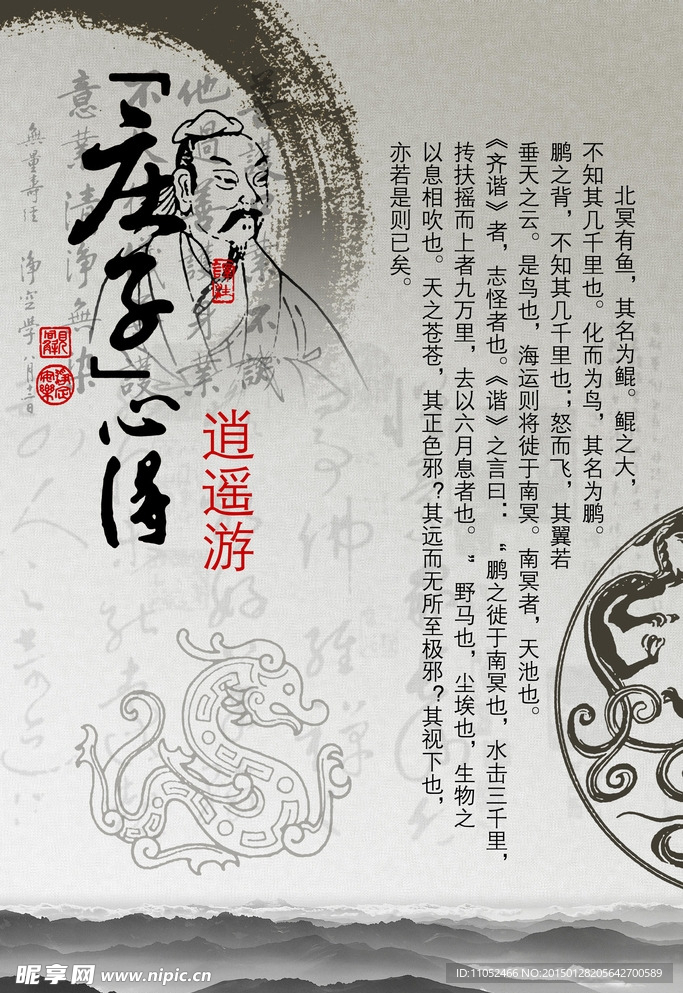 北冥有鱼，其名为鲲。鲲之大，
不知其几千里也。化而为鸟，其名为鹏。
鹏之背，不知其几千里也；怒而飞，其翼若
垂天之云。是鸟也，海运则将徙于南冥。南冥者，天池也。
《齐谐》者，志怪者也。《谐》之言曰：“鹏之徙于南冥也，水击三千里，
抟扶摇而上者九万里，去以六月息者也。”野马也，尘埃也，生物之
以息相吹也。天之苍苍，其正色邪？其远而无所至极邪？其视下也，
亦若是则已矣。
「庄子」心得
逍遥游
意業清淨無染
無量壽經 淨空學
昵享网 www.nipic.cn
ID:11052466 NO:20150128205642700589